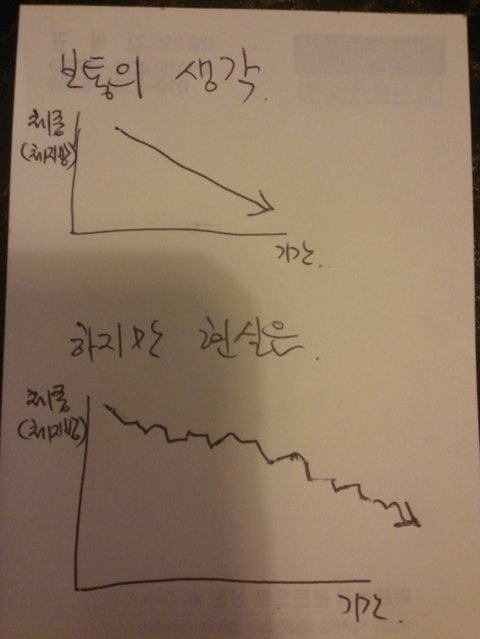 보통의 생각.
체중
(체지방)
기간.
하지만 현실은.
체중
(체지방)
기간.